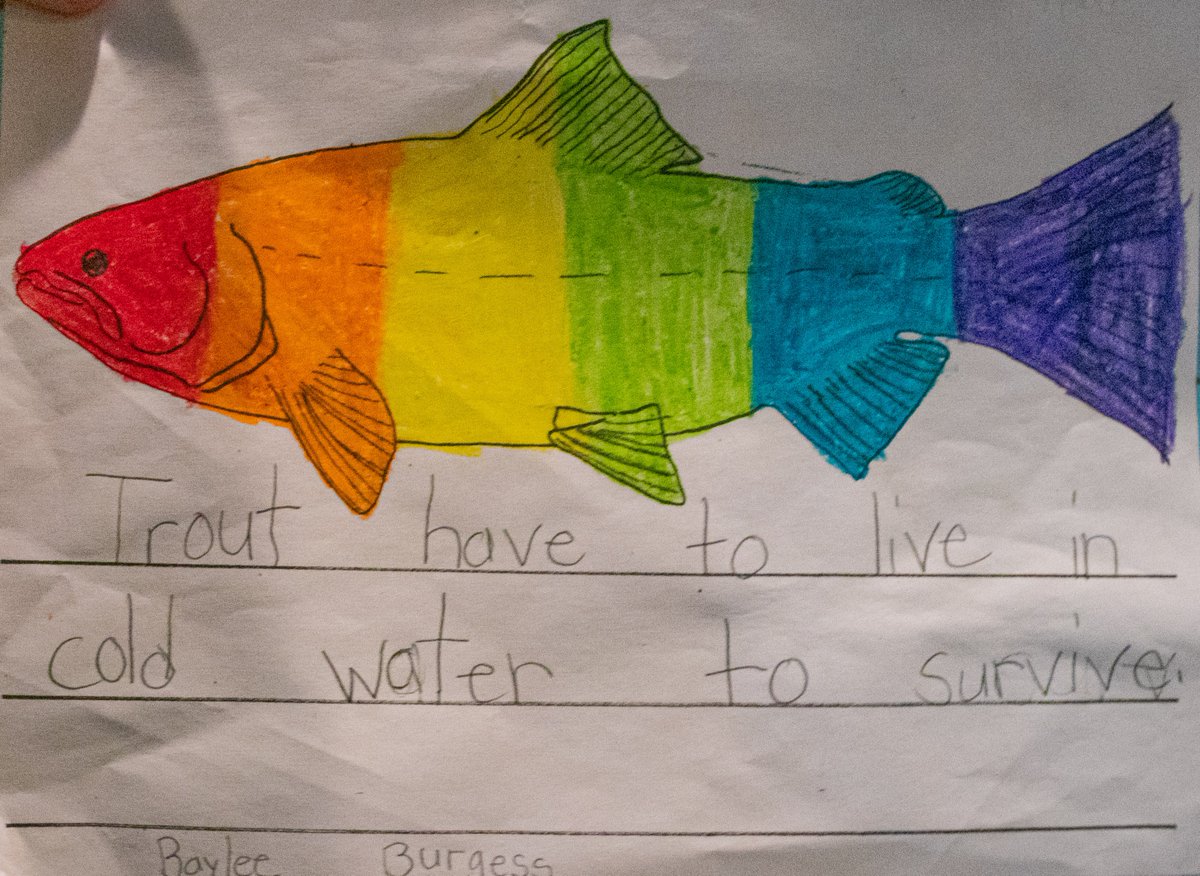 Trout have to live in
cold water to survive.
Baylee Burgess